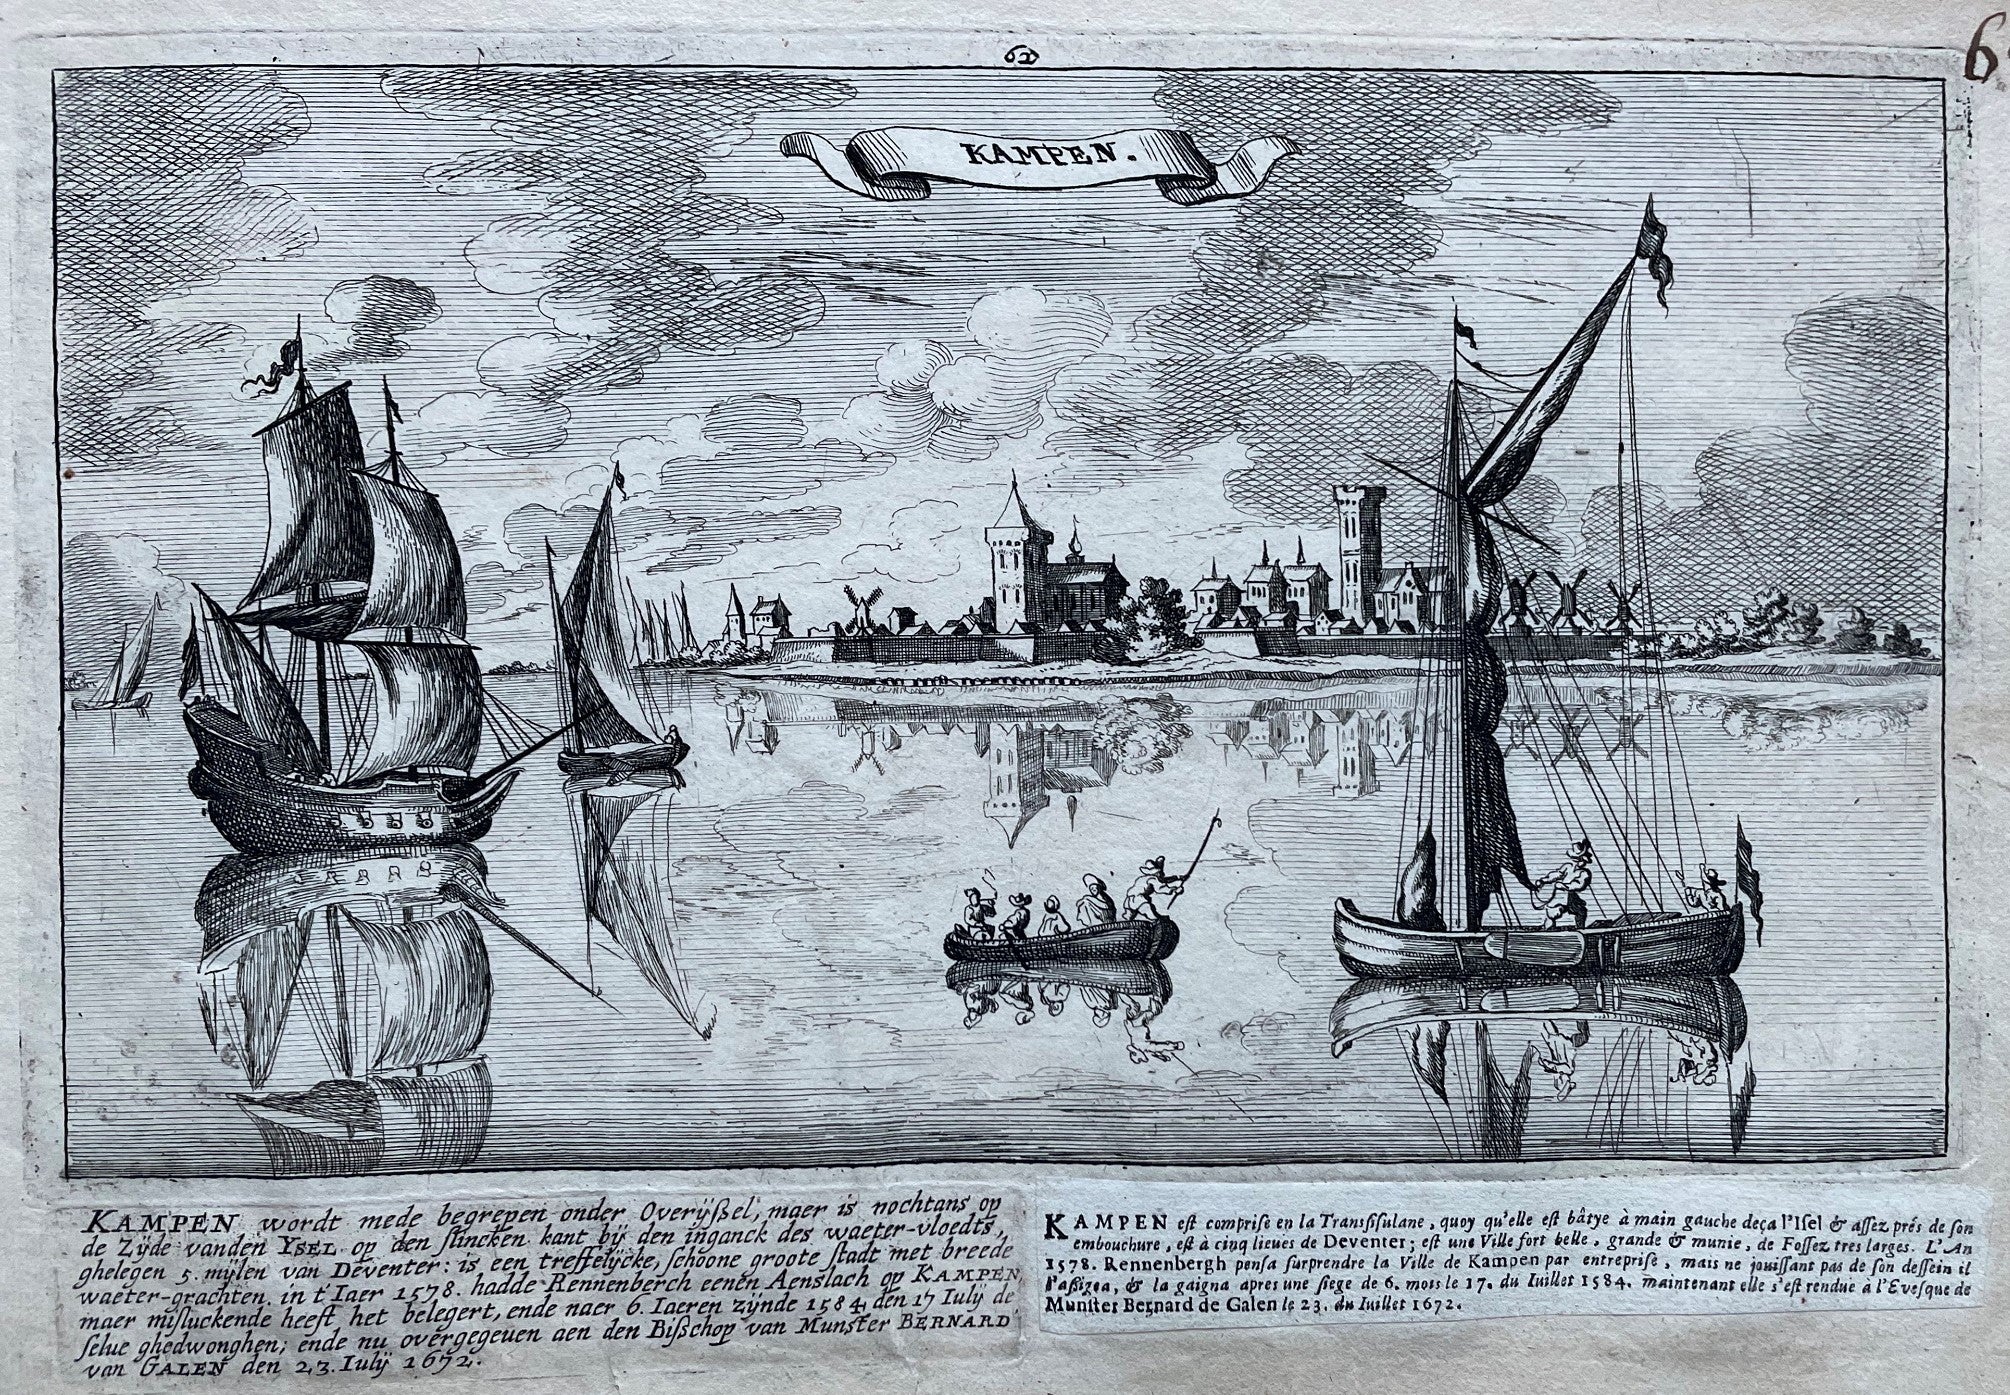 6x
6
KAMPEN.
KAMPEN wordt mede begrepen onder Overÿßel, maer is nochtans op
de Zÿde vanden YSEL op den slincken kant bÿ den inganck des waeter-vloedts,
ghelegen 5. mÿlen van Deventer: is een treffelÿcke, schoone groote stadt met breede
waeter-grachten. in t'Iaer 1578. hadde Rennenberch eenen Aenslach op KAMPEN,
maer misluckende heeft, het belegert, ende naer 6. Iaeren zÿnde 1584, den 17 Iulÿ de
selue ghedwonghen; ende nu overgegeuen aen den Bißchop van Munster BERNARD
van GALEN den 23. Iulÿ 1672.
KAMPEN est comprise en la Transsisulane, quoy qu'elle est bâtye à main gauche deça l'Isel & assez prés de son
embouchure, est à cinq lieues de Deventer; est une Ville fort belle, grande & munie, de Fossez tres larges. L'An
1578. Rennenbergh pensa surprendre la Ville de Kampen par entreprise, mais ne jouissant pas de son dessein il
l'assigea, & la gaigna apres une siege de 6. mois le 17. du Iuillet 1584. maintenant elle s'est rendue à l'Evesque de
Munster Bernard de Galen le 23. du Iuillet 1672.